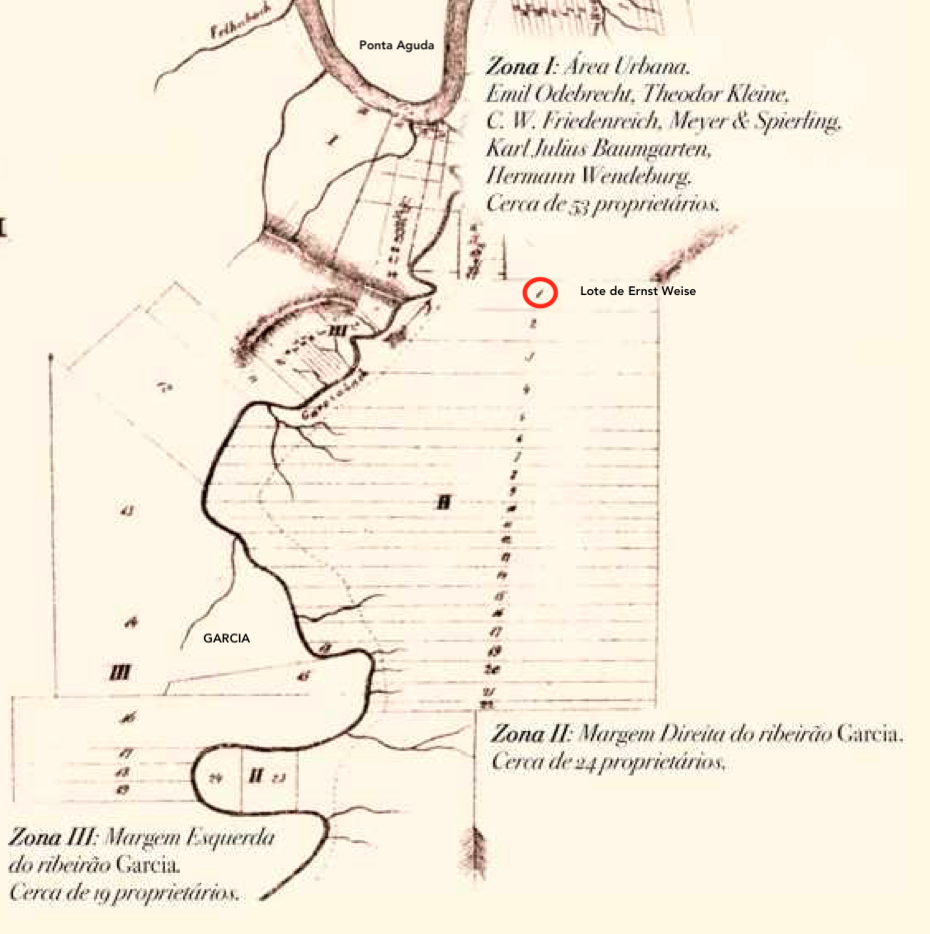 Felhobach
Ponta Aguda
Zona I: Área Urbana.
Emil Odebrecht, Theodor Kleine,
C. W. Friedenreich, Meyer & Spierling,
Karl Julius Baumgarten,
Hermann Wendeburg.
Cerca de 53 proprietários.
I
I
1
Lote de Ernst Weise
2
III
3
4
5
6
7
8
9
II
10
11
12
13
13
14
15
16
14
17
GARCIA
19
20
III
15
21
22
16
17
18
19
24 II 23
Zona II: Margem Direita do ribeirão Garcia.
Cerca de 24 proprietários.
Zona III: Margem Esquerda
do ribeirão Garcia.
Cerca de 19 proprietários.